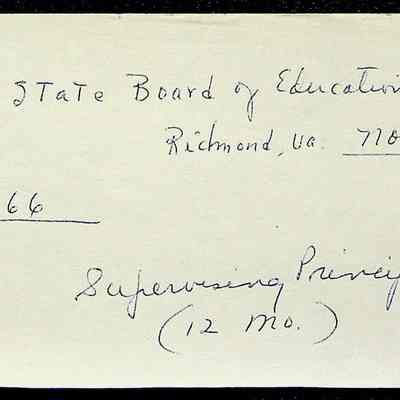 State Board of Education
Richmond, Va. 770
66
Supervising Princip
(12 Mo.)